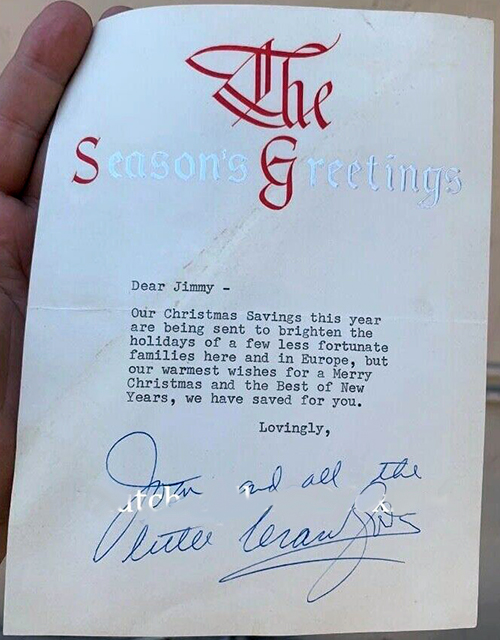 The
Season's Greetings
Dear Jimmy -
Our Christmas Savings this year
are being sent to brighten the
holidays of a few less fortunate
families here and in Europe, but
our warmest wishes for a Merry
Christmas and the Best of New
Years, we have saved for you.
Lovingly,
Joan and all the
little Crawfords